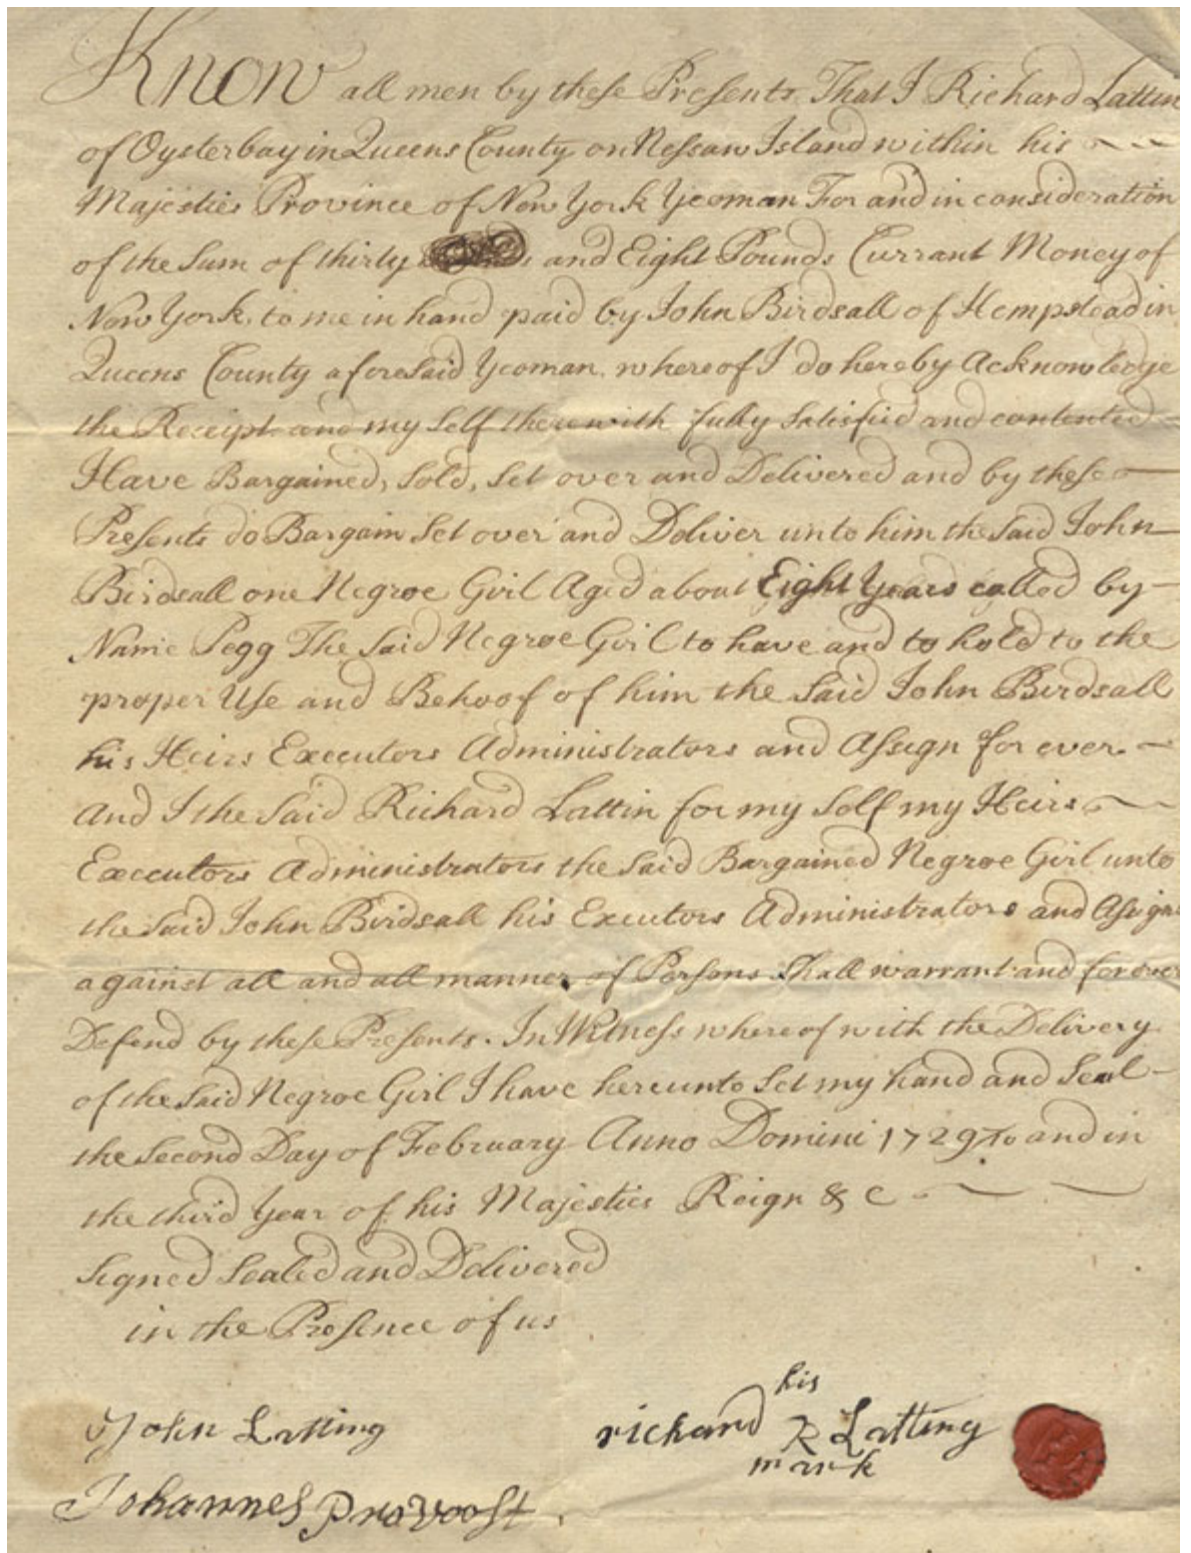 Know all men by these Presents That I Richard Lattin
of Oysterbay in Queens County on Nessaw Island within his
Majesties Province of New York Yeoman For and in consideration
of the Sum of thirty and Eight Pounds Currant Money of
New York, to me in hand paid by John Birdsall of Hempstead in
Queens County aforesaid Yeoman whereof I do hereby Acknowledge
the Receipt and my Self therewith fully Satisfied and contented
Have Bargained, Sold, Set over and Delivered and by these
Presents do Bargain Set over and Deliver unto him the Said John
Birdsall one Negroe Girl Aged about Eight Years called by
Name Pegg The Said Negroe Girl to have and to hold to the
proper Use and Behoof of him the Said John Birdsall
his Heirs Executors Administrators and Assign for ever.
And I the Said Richard Lattin for my Self my Heirs
Executors Administrators the Said Bargained Negroe Girl unto
the Said John Birdsall his Excutors Administrators and Assigns
against all and all manner of Persons Shall warrant and for ever
Defend by these Presents. In Witness whereof with the Delivery
of the Said Negroe Girl I have hereunto Set my hand and Seal
the Second Day of February Anno Domini 1729 and in
the third Year of his Majesties Reign & C
Signed Sealed and Delivered
in the Presence of us
his
John Latting richard R Latting
mark
Johannes Provoost